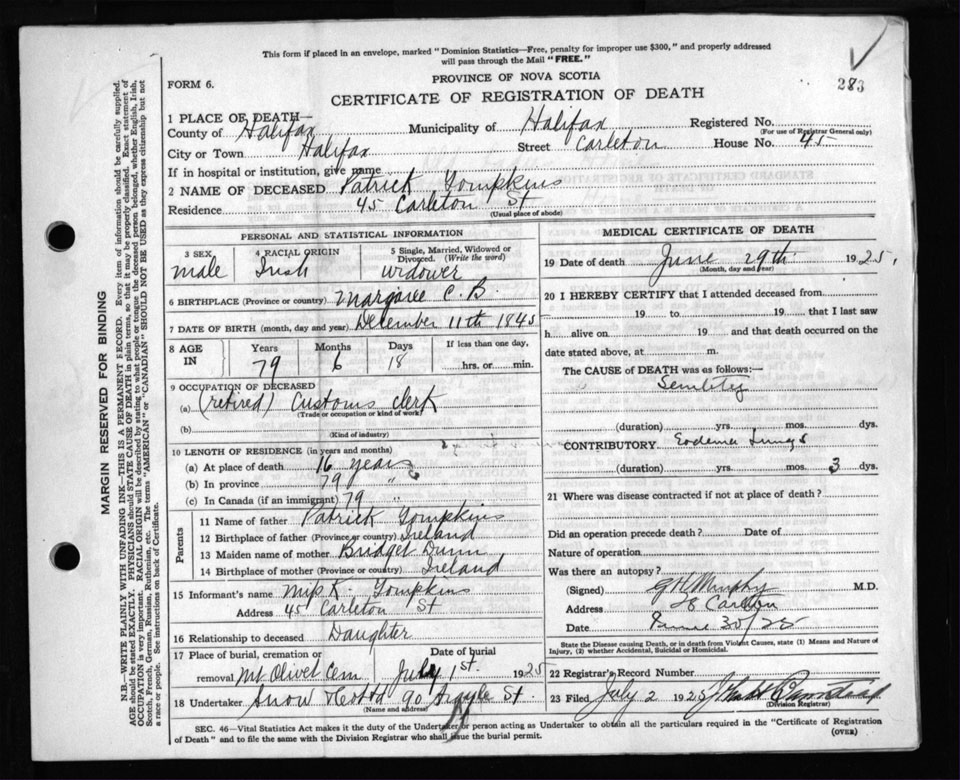 This form if placed in an envelope, marked "Dominion Statistics—Free, penalty for improper use $300," and properly addressed
will pass through the Mail "FREE."
PROVINCE OF NOVA SCOTIA
FORM 6.
283
CERTIFICATE OF REGISTRATION OF DEATH
1 PLACE OF DEATH—
County of Halifax Municipality of Halifax Registered No.
(For use of Registrar General only)
City or Town Halifax Street Carleton House No. 45
If in hospital or institution, give name
2 NAME OF DECEASED Patrick Tompkins
Residence 45 Carleton St
(Usual place of abode)
PERSONAL AND STATISTICAL INFORMATION
3 SEX
male
4 RACIAL ORIGIN
Irish
5 Single, Married, Widowed or
Divorced. (Write the word)
widower
6 BIRTHPLACE (Province or country) Margaree C. B.
7 DATE OF BIRTH (month, day and year) December 11th 1845
8 AGE IN
Years
79
Months
6
Days
18
If less than one day,
hrs. or min.
9 OCCUPATION OF DECEASED
(a) (retired) Customs clerk
(Trade or occupation or kind of work)
(b)
(Kind of industry)
10 LENGTH OF RESIDENCE (in years and months)
(a) At place of death 16 years
(b) In province 79 "
(c) In Canada (if an immigrant) 79 "
Parents
11 Name of father Patrick Tompkins
12 Birthplace of father (Province or country) Ireland
13 Maiden name of mother Bridget Dunn
14 Birthplace of mother (Province or country) Ireland
15 Informant's name Miss K. Tompkins
Address 45 Carleton St
16 Relationship to deceased Daughter
17 Place of burial, cremation or
removal Mt Olivet Cem.
Date of burial
July 1st 1925
18 Undertaker Snow & Co Ltd 90 Argyle St.
(Name and address)
MEDICAL CERTIFICATE OF DEATH
19 Date of death June 29th 1925,
(Month, day and year)
20 I HEREBY CERTIFY that I attended deceased from
19 to 19 that I last saw
h alive on 19 and that death occurred on the
date stated above, at m.
The CAUSE of DEATH was as follows:—
Senility
(duration) yrs. mos. dys.
CONTRIBUTORY Eodema Lungs
(duration) yrs. mos. 3 dys.
21 Where was disease contracted if not at place of death?
Did an operation precede death? Date of
Nature of operation
Was there an autopsy?
(Signed) G H Murphy M.D.
Address 28 Carleton
Date June 30/25
State the Disease causing Death, or in death from Violent Causes, state (1) Means and Nature of
Injury, (2) whether Accidental, Suicidal or Homicidal.
22 Registrar's Record Number
23 Filed July 2 1925
(Division Registrar)
SEC. 46—Vital Statistics Act makes it the duty of the Undertaker or person acting as Undertaker to obtain all the particulars required in the "Certificate of Registration
of Death" and to file the same with the Division Registrar who shall issue the burial permit.
(OVER)
MARGIN RESERVED FOR BINDING
N.B.—WRITE PLAINLY WITH UNFADING INK—THIS IS A PERMANENT RECORD. Every item of information should be carefully supplied.
AGE should be stated EXACTLY. PHYSICIANS should STATE CAUSE OF DEATH in plain terms, so that it may be properly classified. Exact statement of
OCCUPATION is very important. RACIAL ORIGIN will be described by stating to what people or tongue the deceased person belonged, whether English, Irish,
Scotch, French, German, Russian, Ruthenian, etc. The terms "AMERICAN" or "CANADIAN" SHOULD NOT BE USED as they express citizenship but not
a race or people. See instructions on back of Certificate.